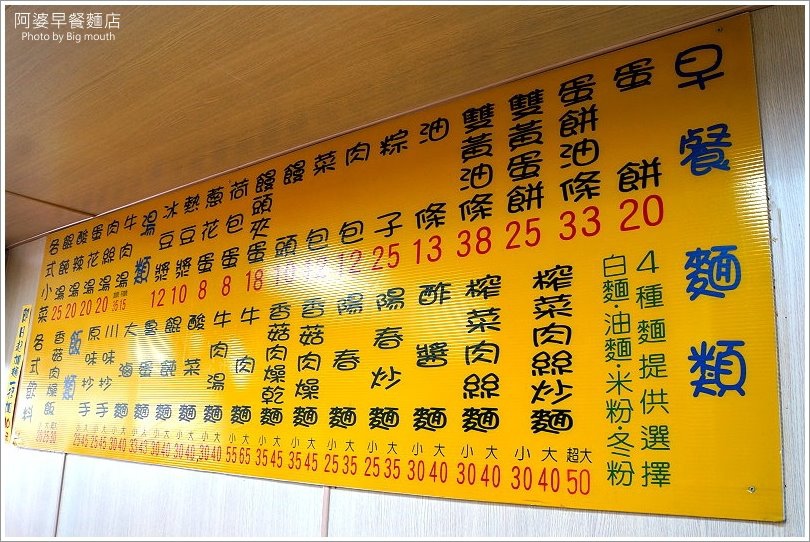 阿婆早餐麵店
Photo by Big mouth
早餐麵類
蛋餅 20
蛋餅油條 33
雙黃蛋餅 25
雙黃油條 38
油條 13
粽子 25
肉包 12
菜包
饅頭
饅頭夾蛋 18
荷包蛋 8
蔥花蛋 8
熱豆漿 10
冰豆漿 12
湯類
牛肉湯
肉絲湯
蛋花湯 20
酸辣湯 20
餛飩湯 20
各式小菜 25
4種麵提供選擇
白麵·油麵·米粉·冬粉
榨菜肉絲炒麵 小30 大40 超大50
榨菜肉絲麵 小30 大40
酢醬麵 小30 大40
陽春炒麵 小25 大35
陽春麵 小25 大35
香菇肉燥麵 小35 大45
香菇肉燥乾麵 小35 大45
牛肉麵 小55 大65
牛肉湯麵 小30 大40
酸菜麵 小30 大40
餛飩麵 小30 大40
魯蛋麵 小30 大40
大滷麵
川味抄手
原味抄手
飯類
香菇肉燥飯
各式飲料